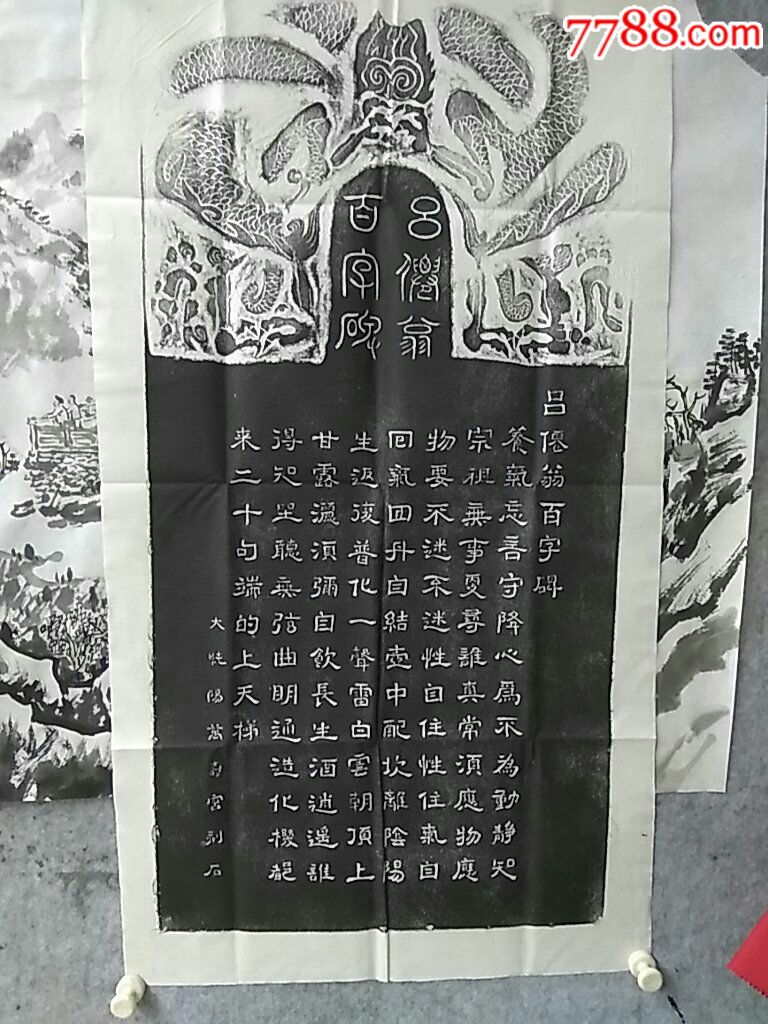 7788.com
呂僊翁
百字碑
吕僊翁百字碑
養氣忘言守降心爲不為動靜知
宗祖無事更尋誰真常須應物應
物要不迷不迷性自住性住氣自
回氣回丹自結壺中配坎離陰陽
生返復普化一聲雷白雲朝頂上
甘露灑須彌自飲長生酒逍遥誰
得知坐聽無弦曲明通造化機都
来二十句端的上天梯
大純陽萬壽宮刻石